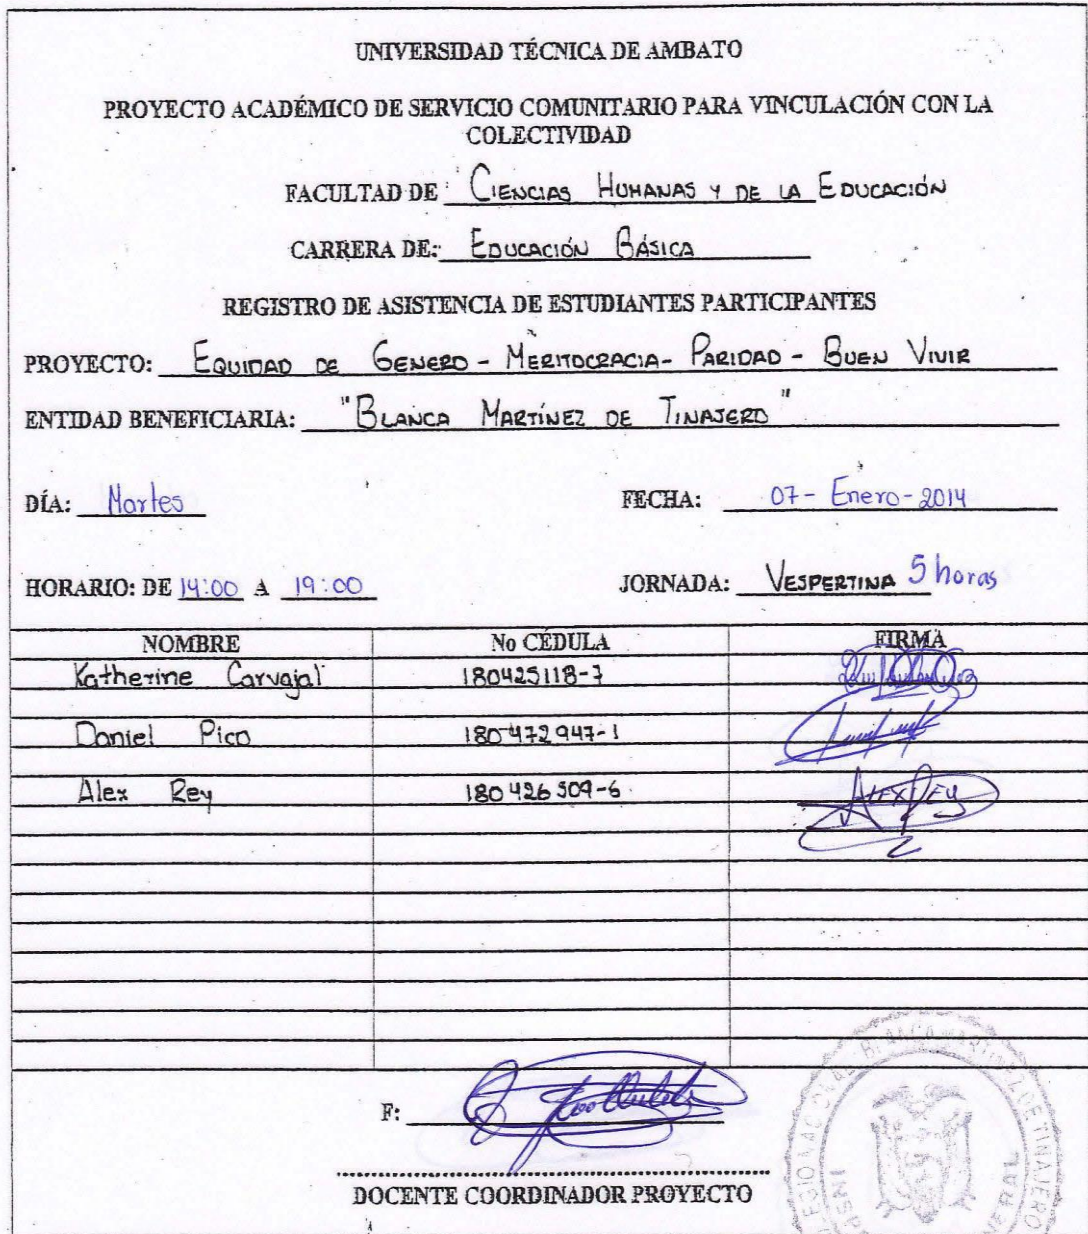 UNIVERSIDAD TÉCNICA DE AMBATO
PROYECTO ACADÉMICO DE SERVICIO COMUNITARIO PARA VINCULACIÓN CON LA
COLECTIVIDAD
FACULTAD DE CIENCIAS HUMANAS Y DE LA EDUCACIÓN
CARRERA DE: EDUCACIÓN BÁSICA
REGISTRO DE ASISTENCIA DE ESTUDIANTES PARTICIPANTES
PROYECTO: EQUIDAD DE GENERO - MERITOCRACIA - PARIDAD - BUEN VIVIR
ENTIDAD BENEFICIARIA: "BLANCA MARTÍNEZ DE TINAJERO"
DÍA: Martes FECHA: 07 - Enero - 2014
HORARIO: DE 14:00 A 19:00 JORNADA: VESPERTINA 5 horas
NOMBRE No CÉDULA FIRMA
Katherine Carvajal 180425118-7
Daniel Pico 180472947-1
Alex Rey 180426509-6 ALEX REY
F:
DOCENTE COORDINADOR PROYECTO
NACIONAL BLANCA MARTINEZ DE TINAJERO